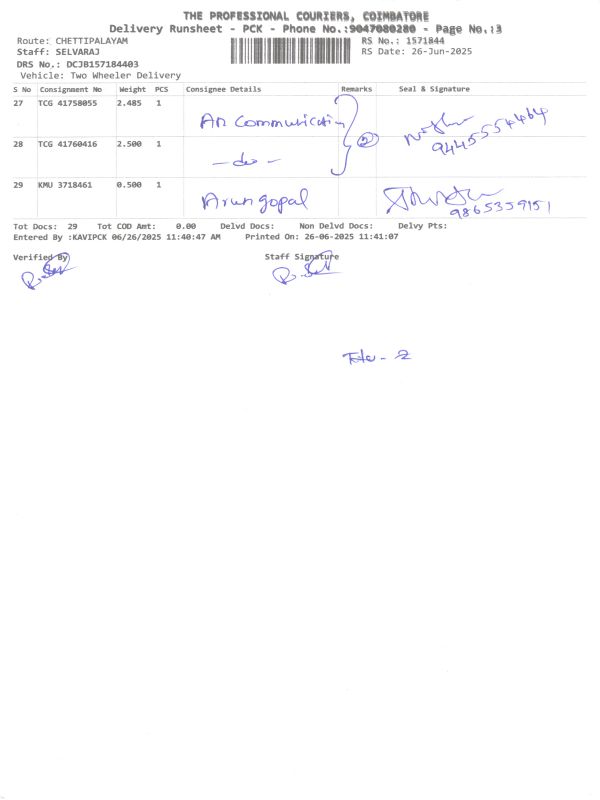 THE PROFESSIONAL COURIERS, COIMBATORE
Delivery Runsheet - PCK - Phone No.:9047080280 - Page No.:3
Route: CHETTIPALAYAM RS No.: 1571844
Staff: SELVARAJ RS Date: 26-Jun-2025
DRS No.: DCJB157184403
Vehicle: Two Wheeler Delivery
S No Consignment No Weight PCS Consignee Details Remarks Seal & Signature
27 TCG 41758055 2.485 1 AR Communication
28 TCG 41760416 2.500 1 - do - 2 9445554464
29 KMU 3718461 0.500 1 Arun gopal 9865359151
Tot Docs: 29 Tot COD Amt: 0.00 Delvd Docs: Non Delvd Docs: Delvy Pts:
Entered By :KAVIPCK 06/26/2025 11:40:47 AM Printed On: 26-06-2025 11:41:07
Verified By Staff Signature